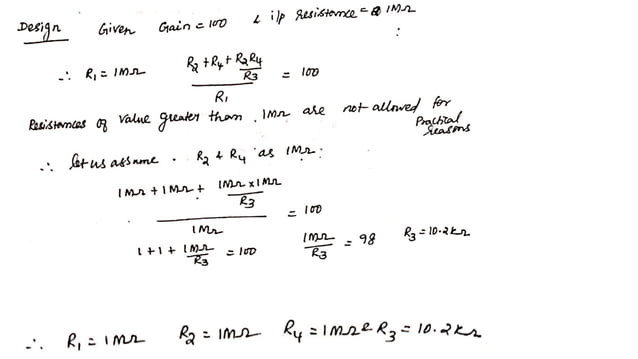 Design Given Gain = 100 & i/p resistance = 1MΩ
∴ R1 = 1MΩ (R2 + R4 + R2R4/R3) / R1 = 100
Resistances of value greater than 1MΩ are not allowed for Practical reasons
∴ let us assume. R2 & R4 as 1MΩ.
(1MΩ + 1MΩ + (1MΩ x 1MΩ)/R3) / 1MΩ = 100
1 + 1 + 1MΩ/R3 = 100 1MΩ/R3 = 98 R3 = 10.2KΩ
∴ R1 = 1MΩ R2 = 1MΩ R4 = 1MΩ & R3 = 10.2KΩ